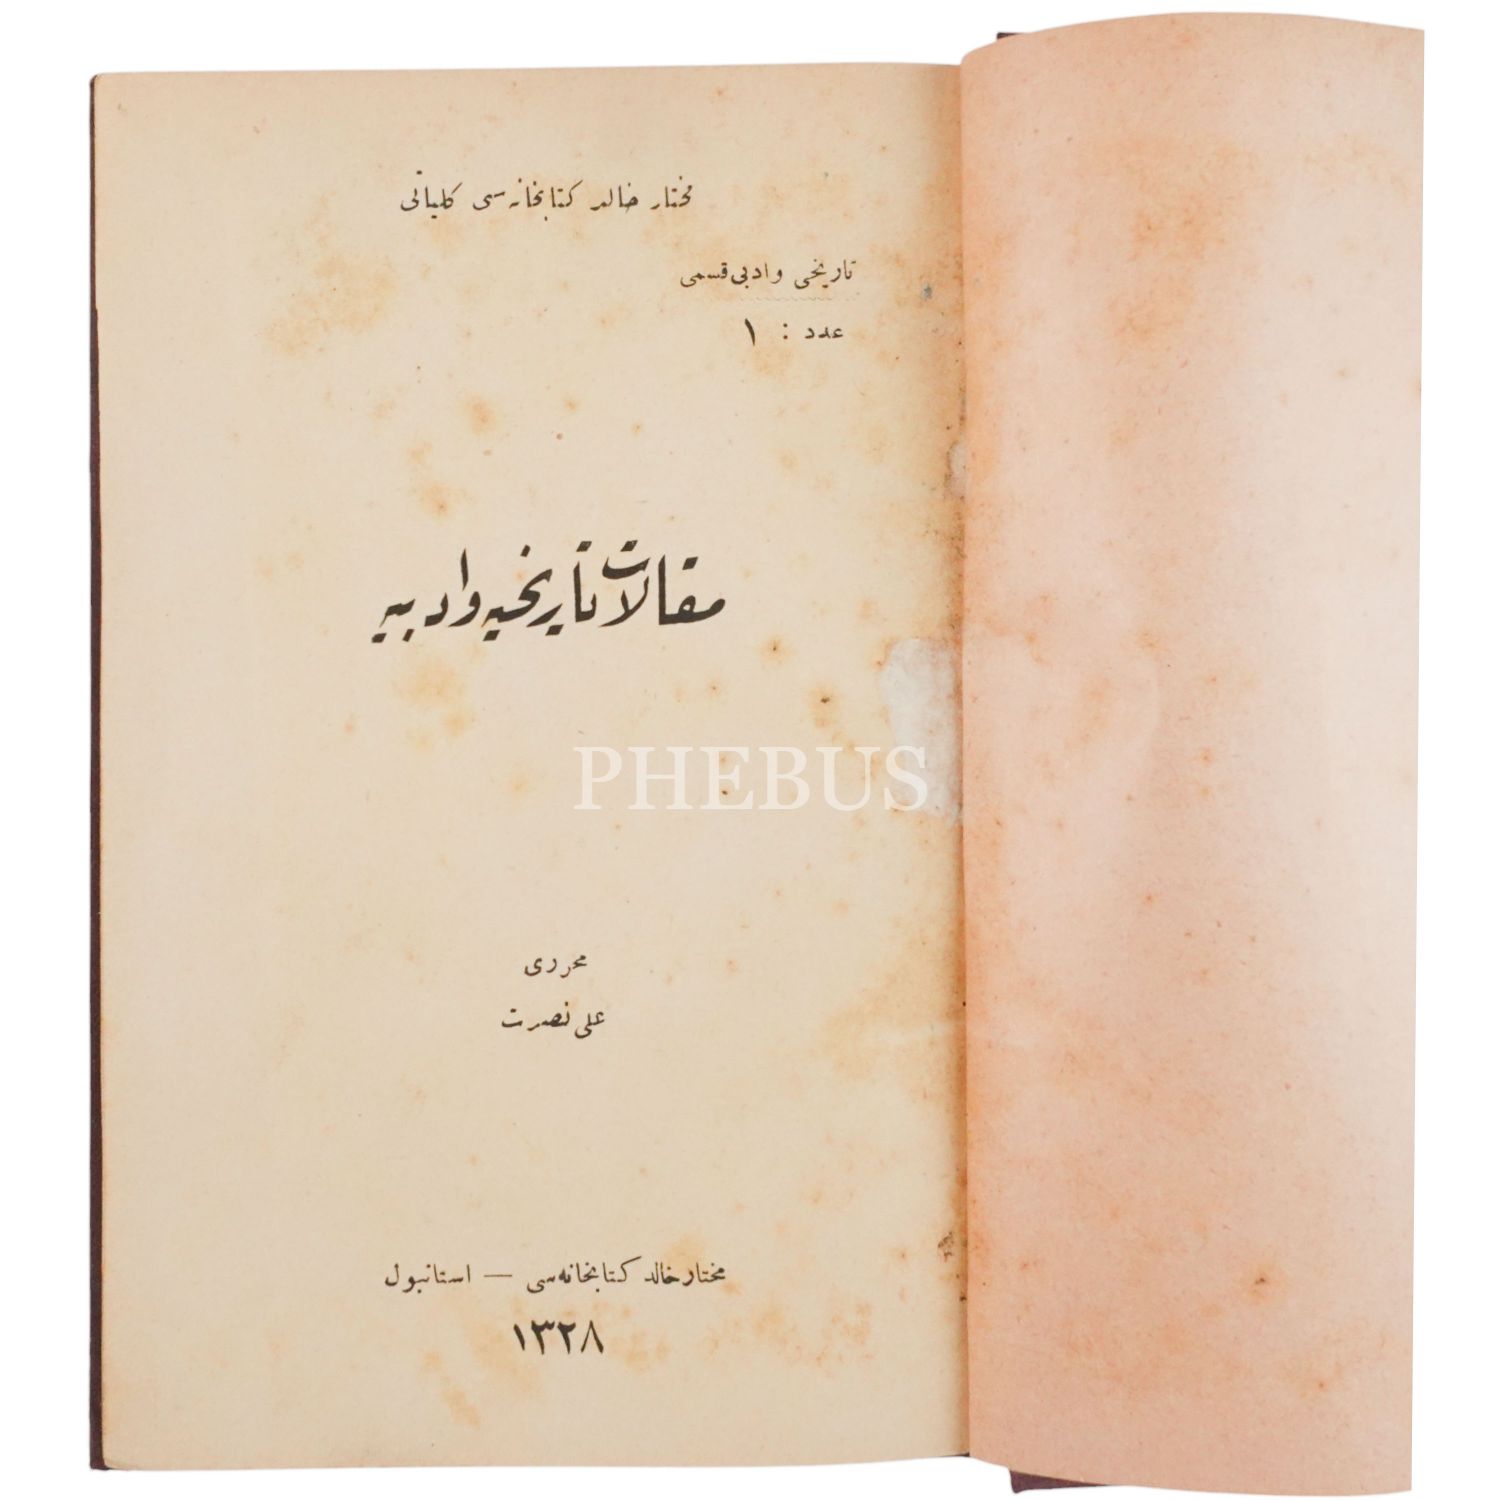 مختار خالد كتابخانه‌سی كلیاتی
تاریخی و ادبی قسمی
عدد : ١
مقالات تاریخیه و ادبیه
PHEBUS
محرری
علی نصرت
مختار خالد كتابخانه‌سی — استانبول
١٣٢٨